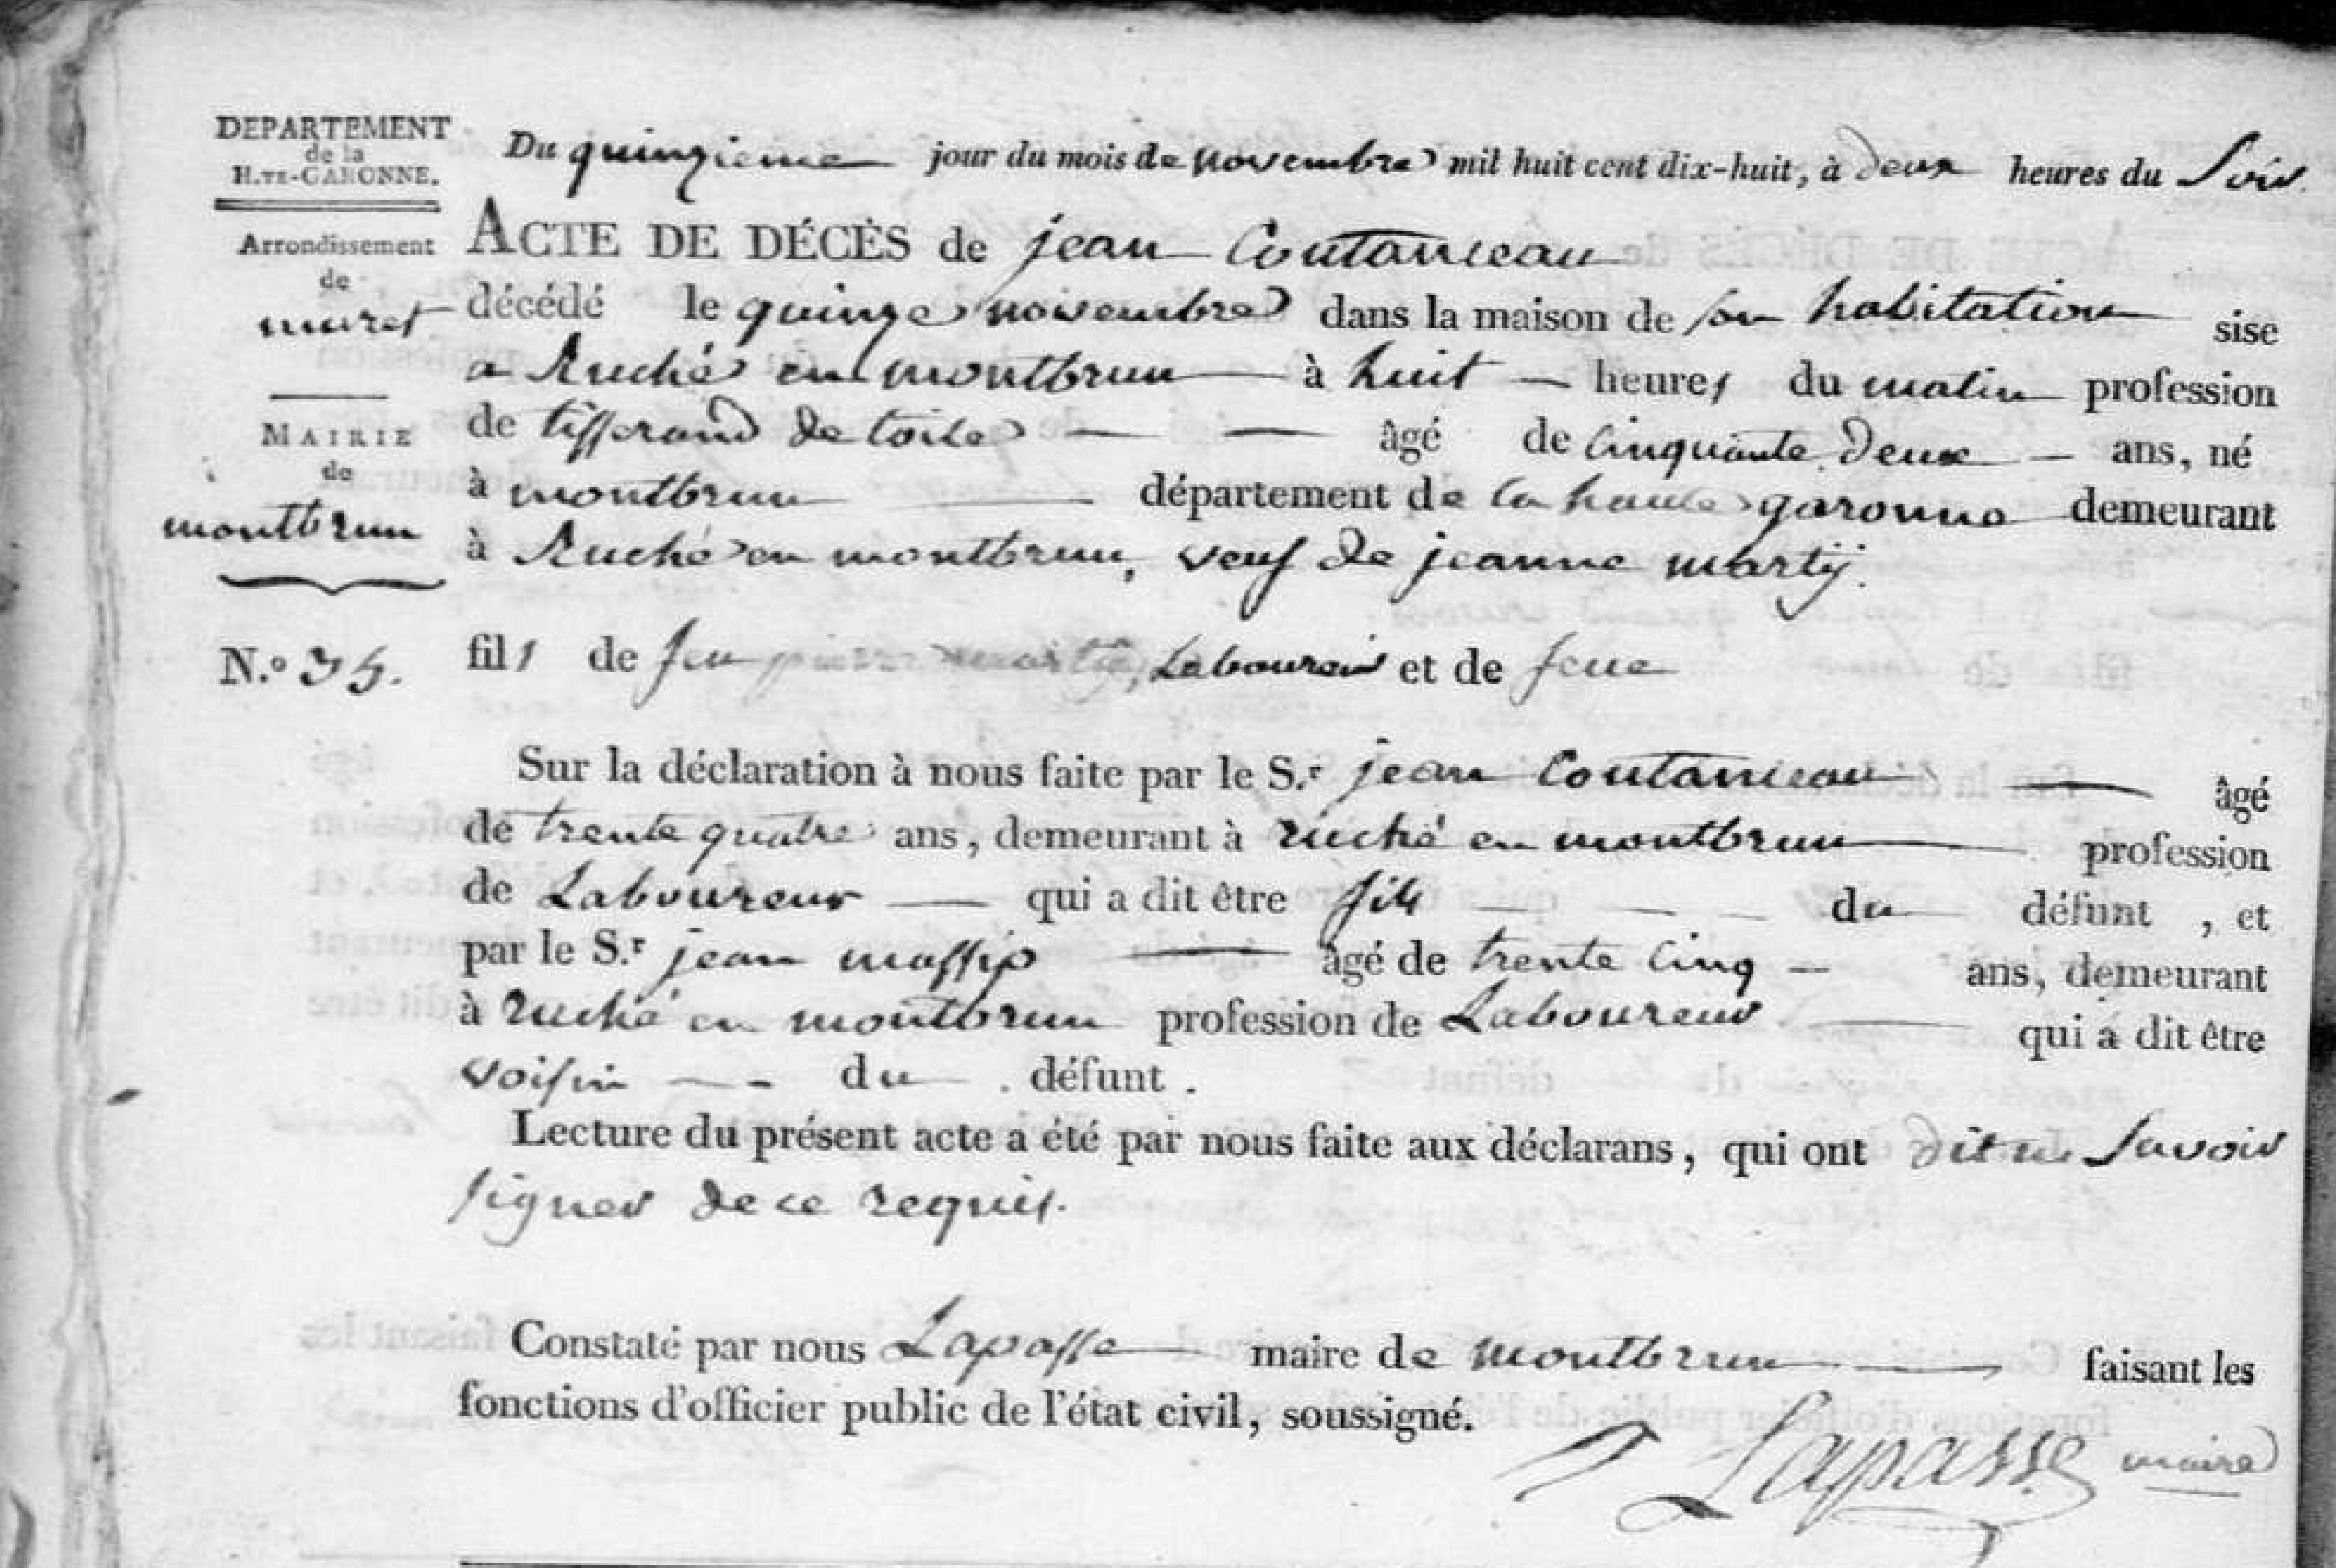 DEPARTEMENT
de la
H.TE-GARONNE.
Arrondissement
de
muret
MAIRIE
de
montbrun
N.o 35.
Du quinzieme jour du mois de novembre mil huit cent dix-huit, à deux heures du Soir
ACTE DE DÉCÈS de jean Coutanceau
décédé le quinze novembre dans la maison de son habitation sise
a Ruché en montbrun à huit heures du matin profession
de tisserand de toile âgé de cinquante deux ans, né
à montbrun département de la haute garonne demeurant
à Ruché en montbrun, veuf de jeanne marty.
fils de feu Laboureur et de feue
Sur la déclaration à nous faite par le S.r jean Coutanceau âgé
de trente quatre ans, demeurant à ruché en montbrun profession
de Laboureur qui a dit être fils du défunt , et
par le S.r jean massip âgé de trente cinq ans, demeurant
à ruché en montbrun profession de Laboureur qui a dit être
voisin du défunt .
Lecture du présent acte a été par nous faite aux déclarans, qui ont dit ne Savoir
signer de ce requis.
Constaté par nous Lapasse maire de montbrun faisant les
fonctions d'officier public de l'état civil, soussigné.
Lapasse maire